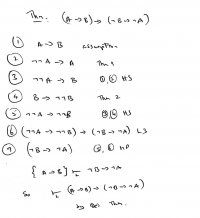 Thm. (A→B)→(¬B→¬A)
① A→B assumption
② ¬¬A→A Thm 1
③ ¬¬A→B ①,② HS
④ B→¬¬B Thm 2
⑤ ¬¬A→¬¬B ③,④ HS
⑥ (¬¬A→¬¬B)→(¬B→¬A) L3
⑦ (¬B→¬A) ⑤,⑥ MP
{A→B} ⊢ ¬B→¬A
L
So ⊢ (A→B)→(¬B→¬A)
L
by Ded Thm.